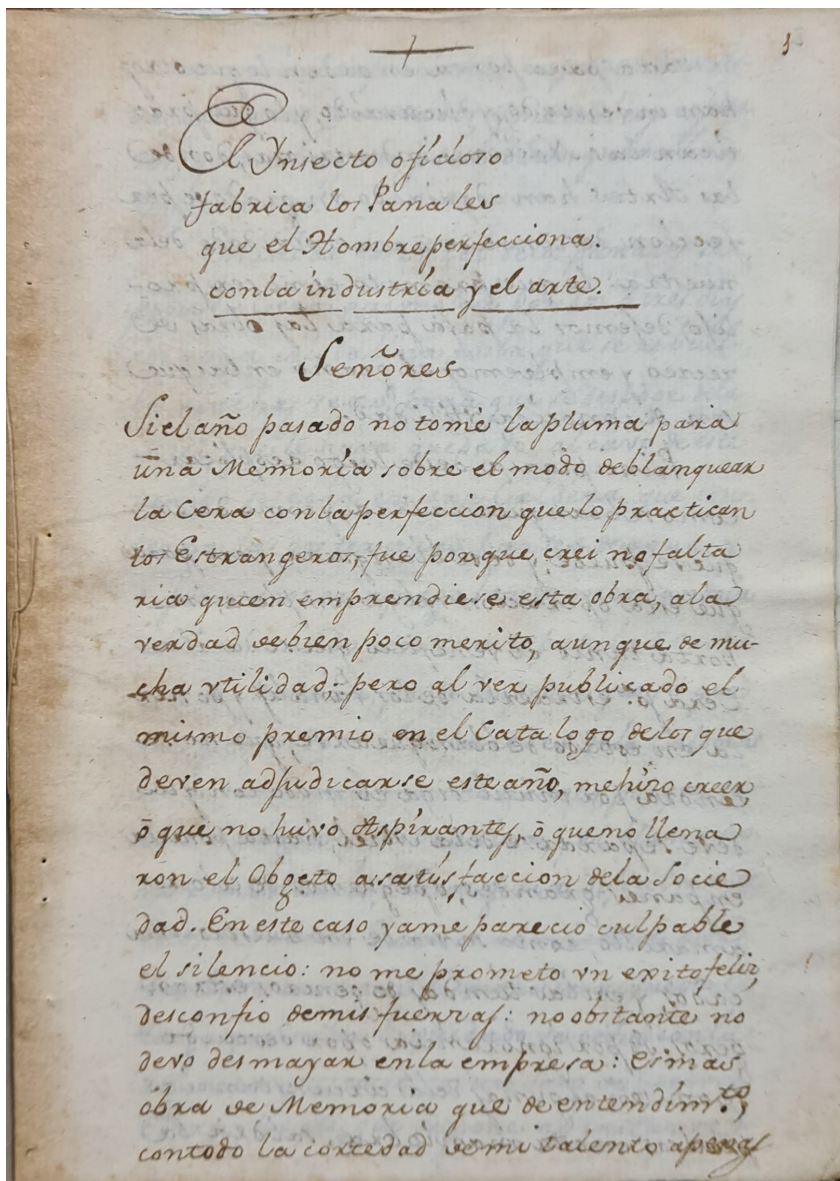 1
El Ynsecto oficioso
fabrica los Panales
que el Hombre perfecciona.
con la industria y el arte.
Señores
Si el año pasado no tomé la pluma para
una Memoria sobre el modo de blanquear
la Cera con la perfeccion que lo practican
los Estrangeros, fue porque crei no falta
ria quien emprendiese esta obra, a la
verdad de bien poco merito, aunque de mu-
cha vtilidad; pero al ver publicado el
mismo premio en el Catalogo de los que
deven adjudicarse este año, me hizo creer,
ó que no huvo Aspirantes, ó que no llena
ron el Obgeto a satisfaccion de la Socie
dad. En este caso ya me parecio culpable
el silencio: no me prometo vn exito feliz,
desconfio de mis fuerzas: no obstante no
devo desmayar en la empresa: Es mas
obra de Memoria que de entendim.to,
con todo la cortedad de mi talento apenas